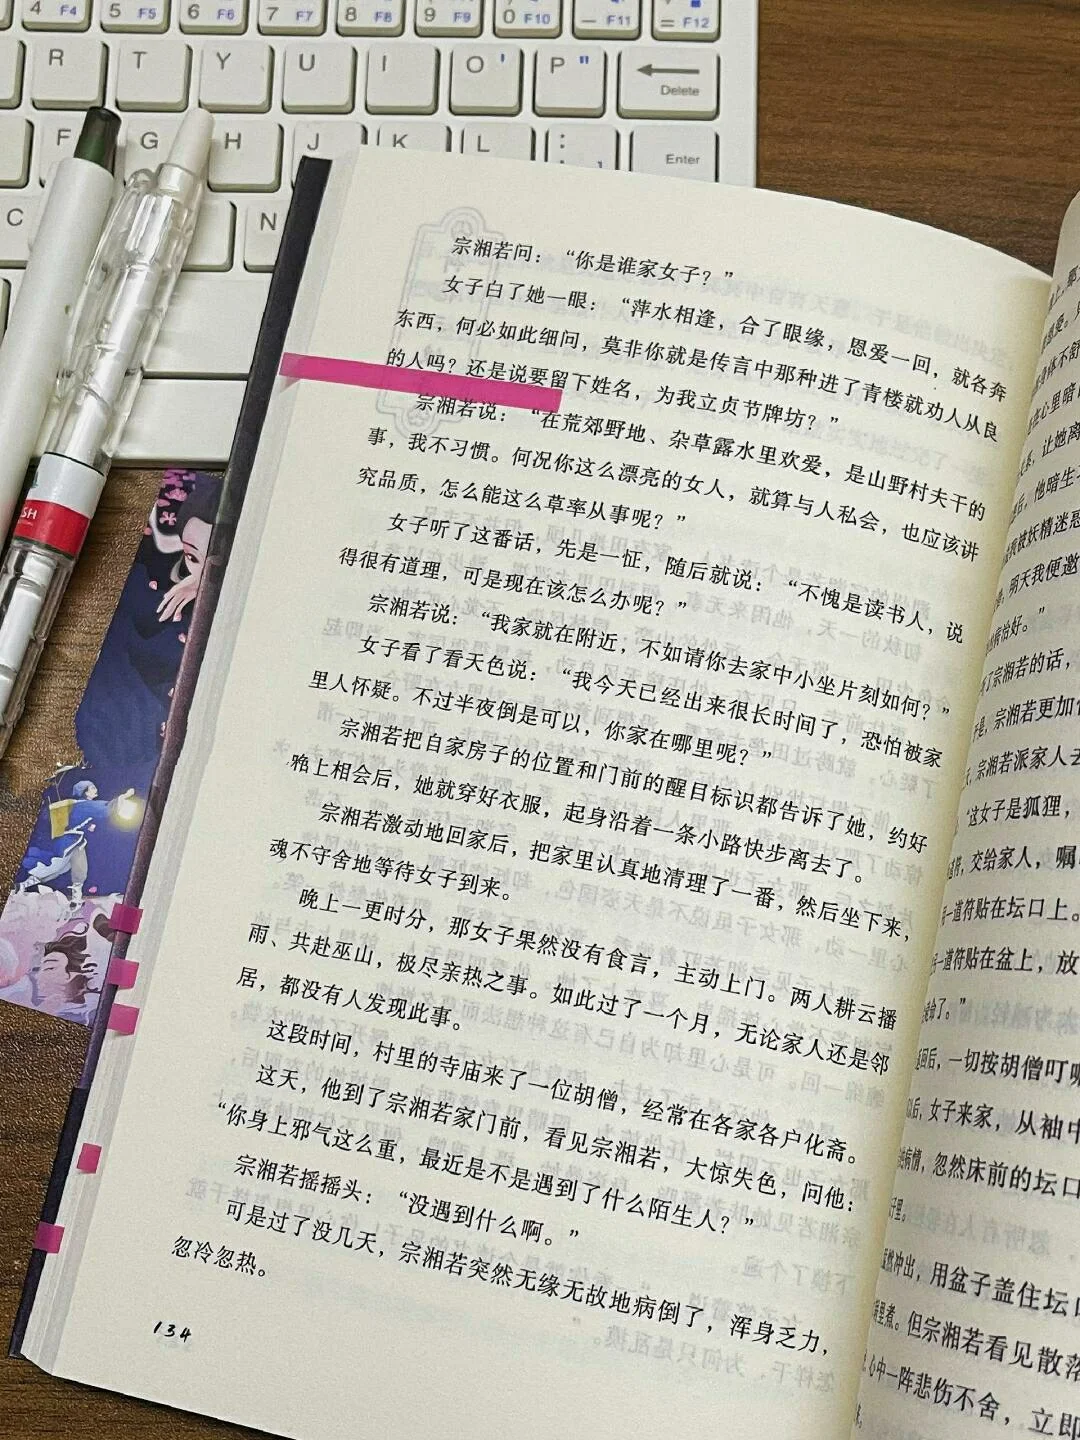 4 F4 5 F5 6 F6 7 F7 8 F8 9 F9 0 F10 - F11 = F12
R T Y U I O ' P " Delete
F G H J K L : ; Enter
C N
SH
宗湘若问：“你是谁家女子？”
女子白了她一眼：“萍水相逢，合了眼缘，恩爱一回，就各奔
东西，何必如此细问，莫非你就是传言中那种进了青楼就劝人从良
的人吗？还是说要留下姓名，为我立贞节牌坊？”
宗湘若说：“在荒郊野地、杂草露水里欢爱，是山野村夫干的
事，我不习惯。何况你这么漂亮的女人，就算与人私会，也应该讲
究品质，怎么能这么草率从事呢？”
女子听了这番话，先是一怔，随后就说：“不愧是读书人，说
得很有道理，可是现在该怎么办呢？”
宗湘若说：“我家就在附近，不如请你去家中小坐片刻如何？”
女子看了看天色说：“我今天已经出来很长时间了，恐怕被家
里人怀疑。不过半夜倒是可以，你家在哪里呢？”
宗湘若把自家房子的位置和门前的醒目标识都告诉了她，约好
晚上相会后，她就穿好衣服，起身沿着一条小路快步离去了。
宗湘若激动地回家后，把家里认真地清理了一番，然后坐下来，
魂不守舍地等待女子到来。
晚上一更时分，那女子果然没有食言，主动上门。两人耕云播
雨、共赴巫山，极尽亲热之事。如此过了一个月，无论家人还是邻
居，都没有人发现此事。
这段时间，村里的寺庙来了一位胡僧，经常在各家各户化斋。
这天，他到了宗湘若家门前，看见宗湘若，大惊失色，问他：
“你身上邪气这么重，最近是不是遇到了什么陌生人？”
宗湘若摇摇头：“没遇到什么啊。”
可是过了没几天，宗湘若突然无缘无故地病倒了，浑身乏力，
忽冷忽热。
134
心里暗
让她离
后，他暗生
被妖精迷惑
明天我便邀
病恰好。”
了宗湘若的话，
是，宗湘若更加
，宗湘若派家人去
“这女子是狐狸，
交给家人，嘱
一道符贴在坛口上。
一道符贴在盆上，放
回后，一切按胡僧叮
后，女子来家，从袖中
病情，忽然床前的坛口
冲出，用盆子盖住坛口
里煮。但宗湘若看见散落
心中一阵悲伤不舍，立即